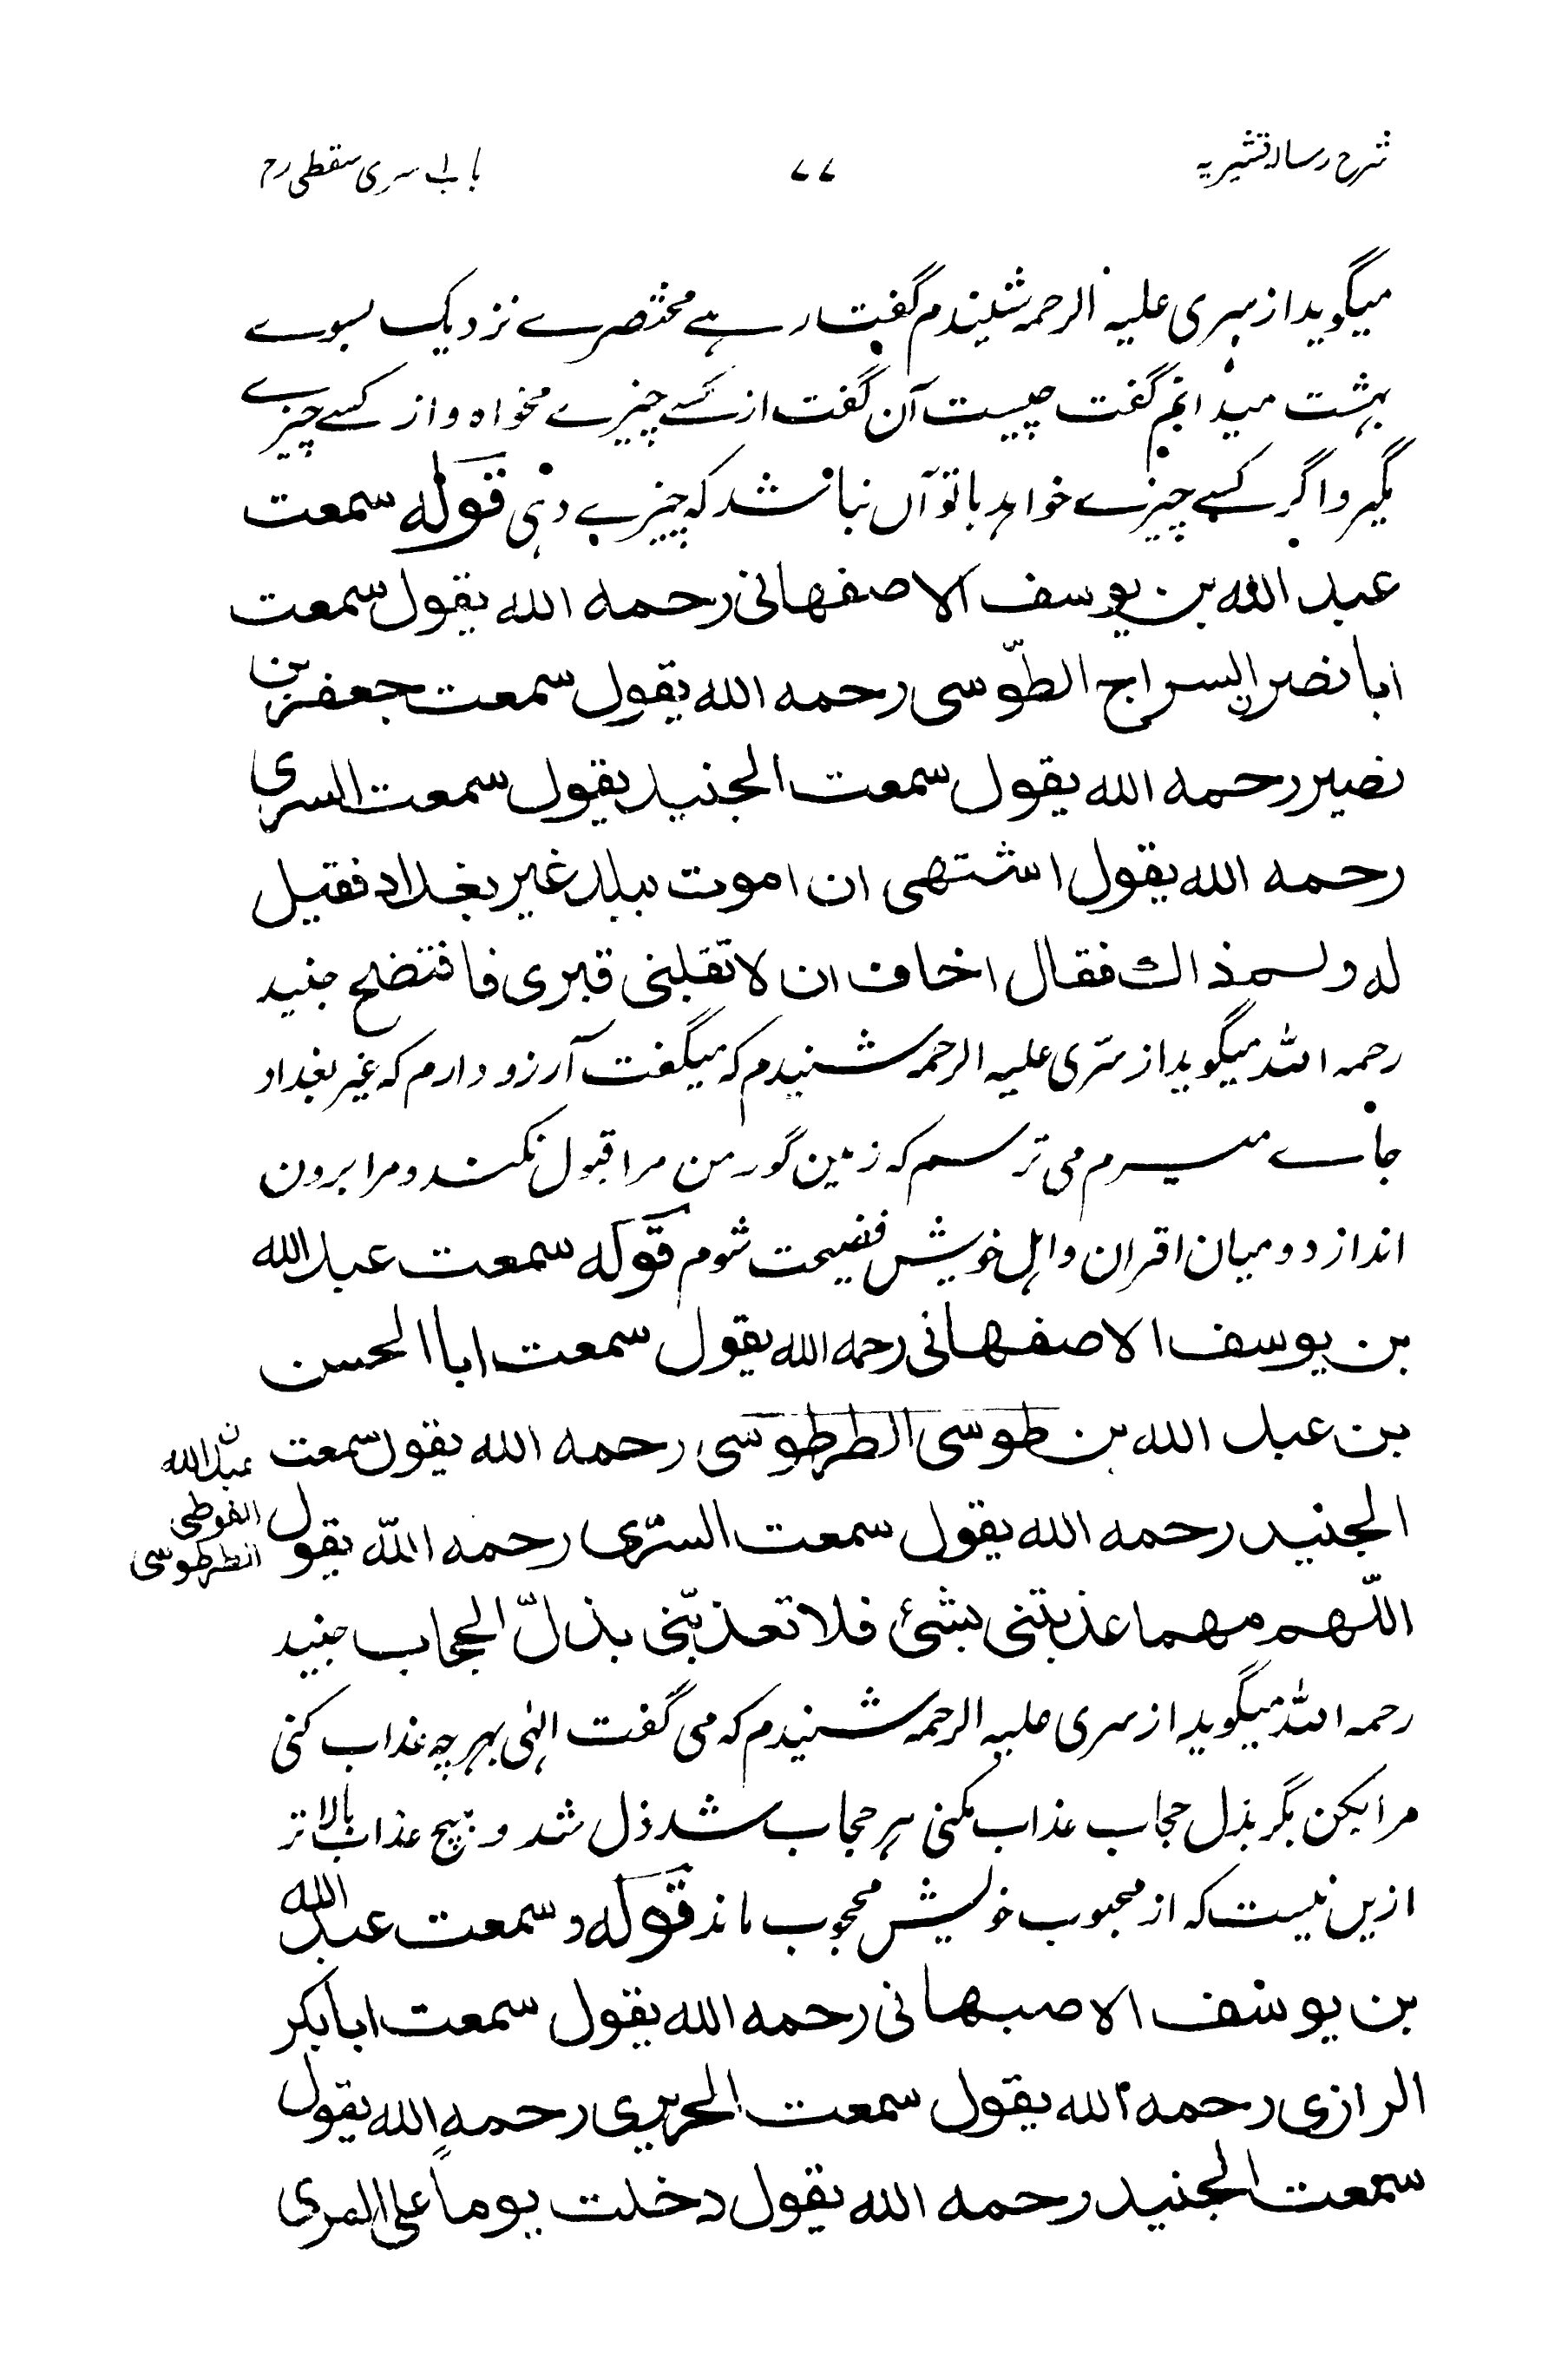 شرح رسالہ قشیریہ
۷۷
باب سری سقطی رح
میگوید از سری علیہ الرحمہ شنیدم گفت رہے مختصرے نزدیک بسوے
بہشت میدانم گفت چیست آن گفت از کسے چیزے مخواہ و از کسے چیزے
مگیر و اگر کسے چیزے خواہد با تو آں نباشد کہ چیزے دہی قوله سمعت
عبد الله بن يوسف الاصفهانى رحمه الله يقول سمعت
ابا نصر السراج الطّوسى رحمه الله يقول سمعت جعفر بن
نصير رحمه الله يقول سمعت الجنيد يقول سمعت السرى
رحمه الله يقول اشتهى ان اموت ببلد غير بغداد فقيل
له ولم ذالك فقال اخاف ان لا تقبلنى قبرى فافتضح جنید
رحمہ اللہ میگوید از سری علیہ الرحمہ شنیدم کہ میگفت آرزو دارم کہ غیر بغداد
جاے میرم می ترسم کہ زمین گور من مرا قبول نکند و مرا برون
اندازد و میان اقران و اہل خویش فضیحت شوم قوله سمعت عبد الله
بن يوسف الاصفهانى رحمه الله يقول سمعت ابا الحسن
بن عبد الله بن طوسى الطرطوسى رحمه الله يقول سمعت
الجنيد رحمه الله يقول سمعت السّرى رحمه اللّه يقول
ن عبد الله
الفوطى
الطرطوسى
اللّهم مهما عذبتنى بشئ فلا تعذبّنى بذلّ الحجاب جنید
رحمہ اللہ میگوید از سری علیہ الرحمہ شنیدم کہ می گفت الہٰی بہر چہ عذاب کنی
مرا بکن مگر بذل حجاب عذاب مکنی ہر حجاب شد ذل شد و ہیچ عذاب بالا تر
ازین نیست کہ از محبوب خویش محجوب ماند قوله و سمعت عبد الله
بن يوسف الاصبهانى رحمه الله يقول سمعت ابا بكر
الرازى رحمه الله يقول سمعت الحريرى رحمه الله يقول
سمعت الجنيد رحمه الله يقول دخلت يوماً على السرى